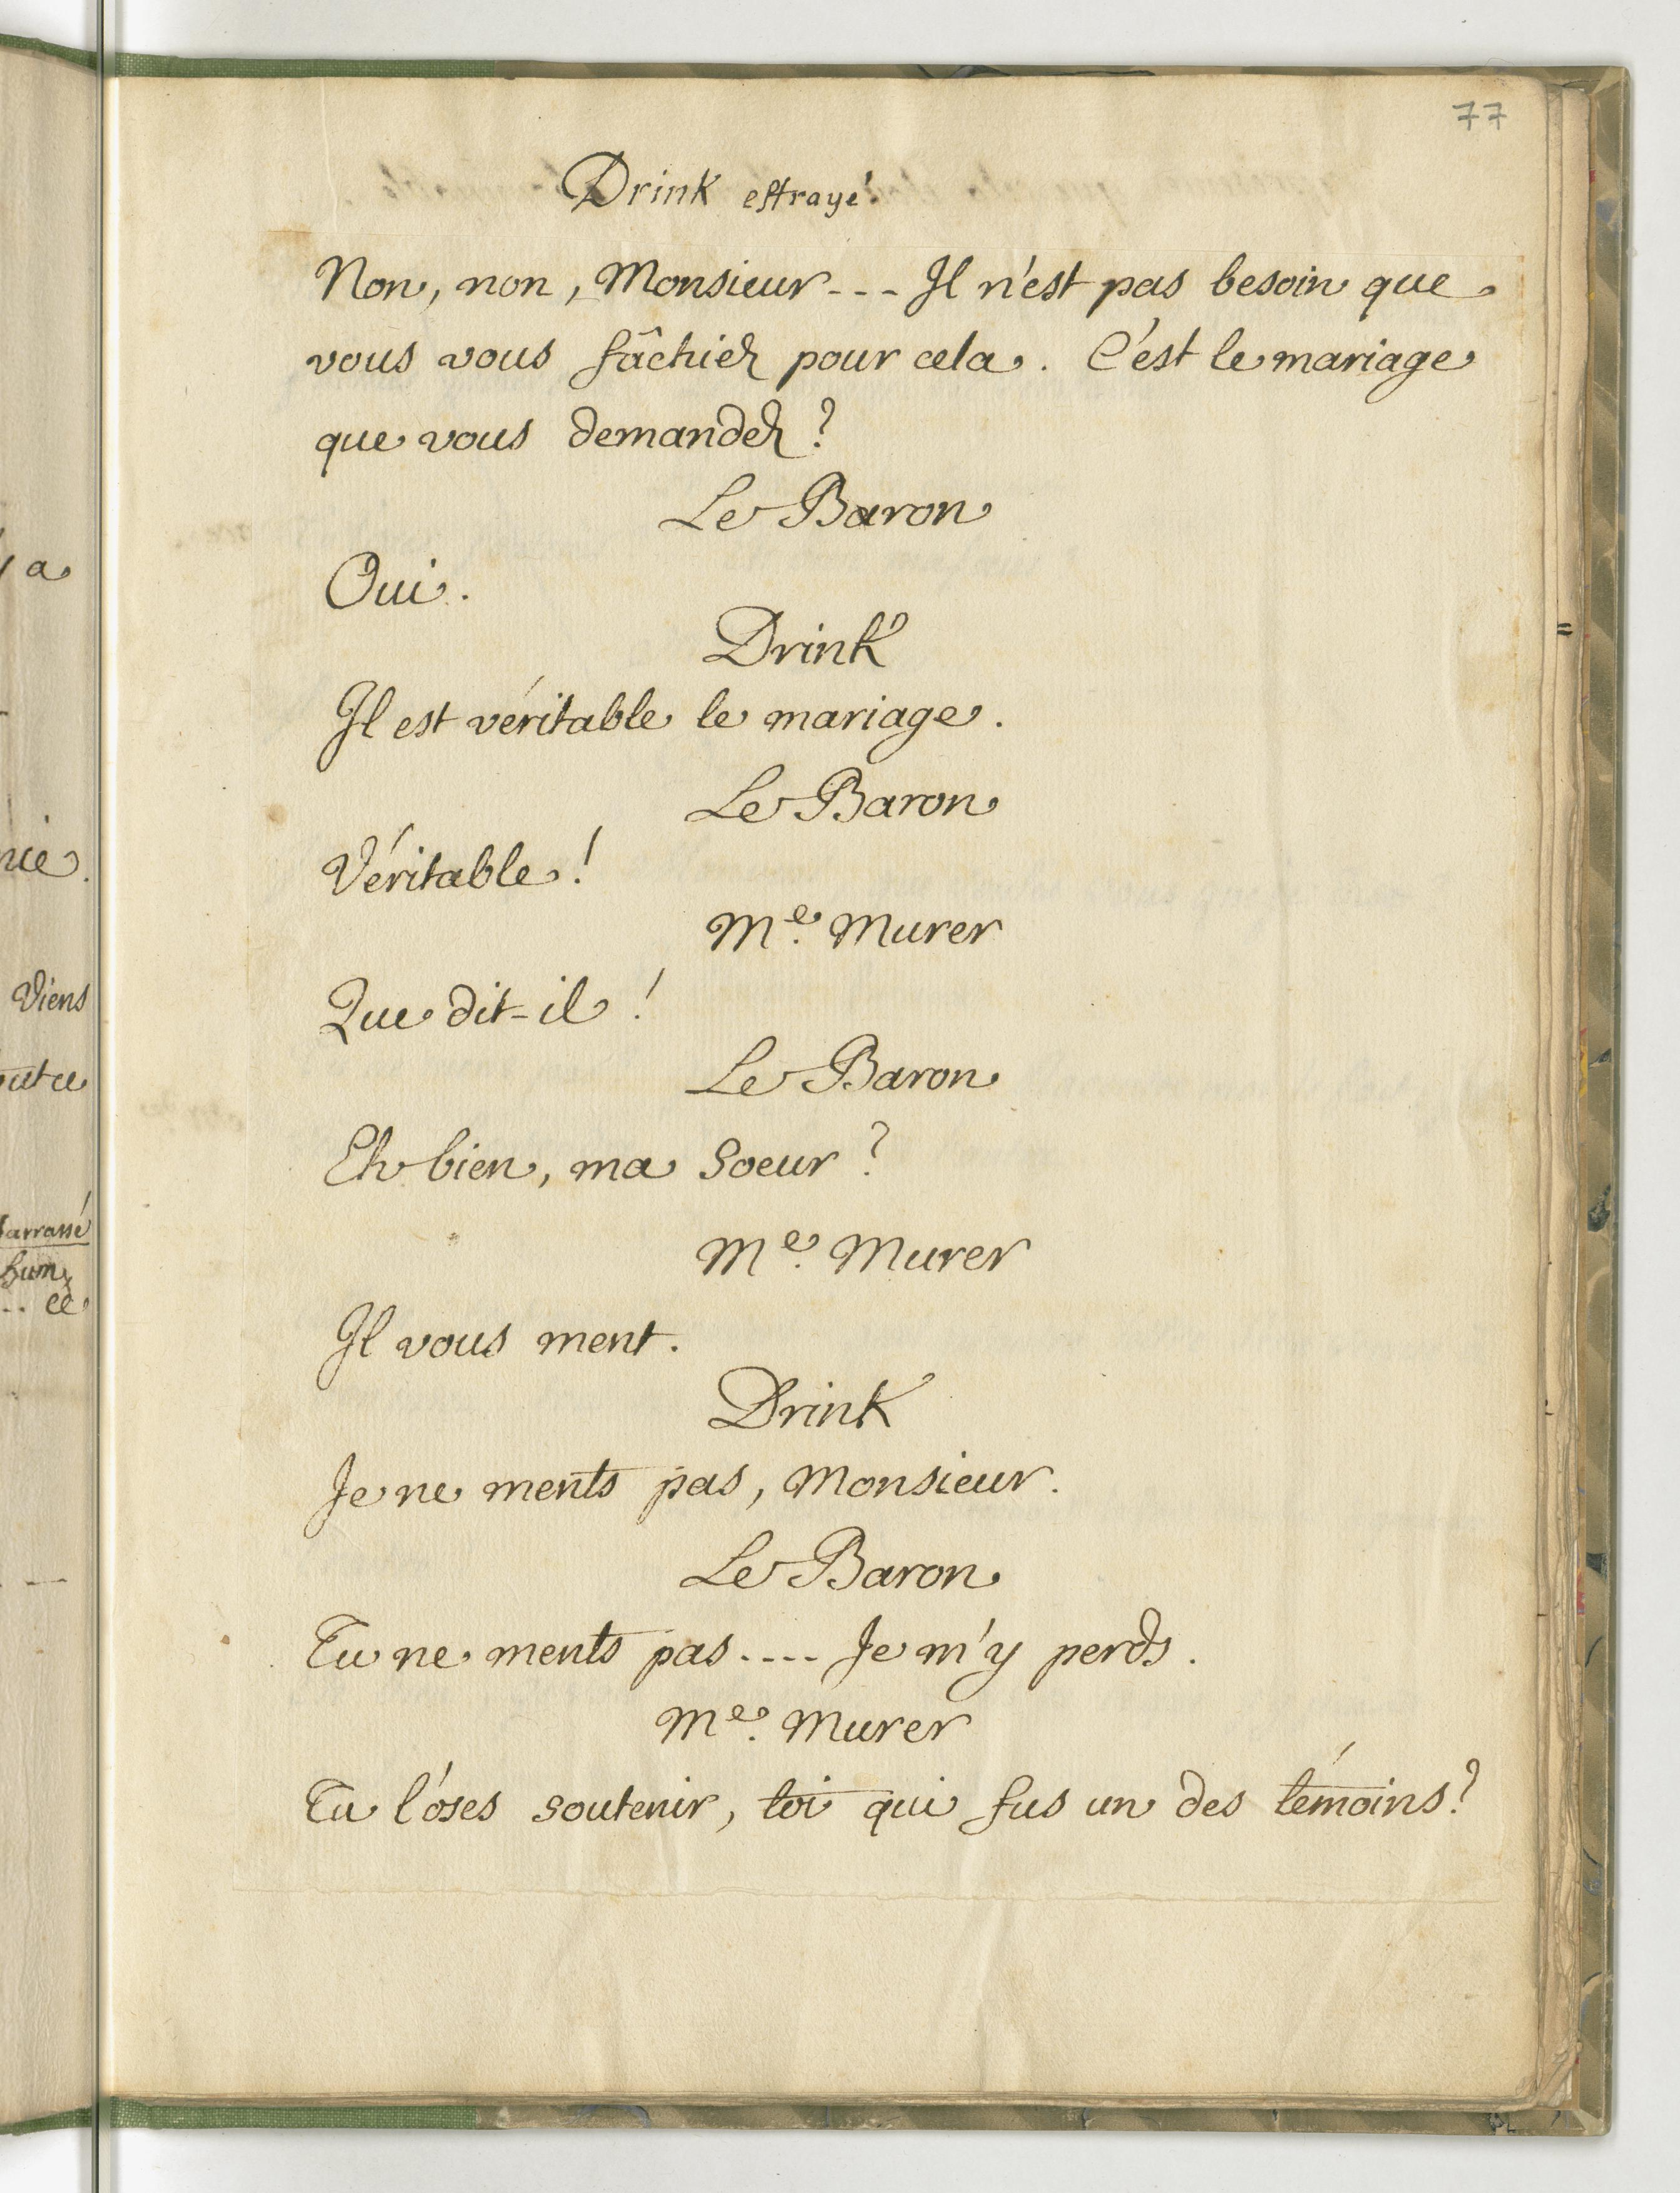 77
Drink effrayé.
Non, non, Monsieur --- Il n'est pas besoin que
vous vous fâchiez pour cela. C'est le mariage
que vous demandez?
Le Baron
Oui.
Drink
Il est véritable le mariage.
Le Baron
Véritable!
Me. Murer
Que dit-il!
Le Baron
Eh bien, ma Soeur?
Me. Murer
Il vous ment.
Drink
Je ne ments pas, Monsieur.
Le Baron
Tu ne ments pas.... Je m'y perds.
Me. Murer
Tu l'oses soutenir, toi qui fus un des témoins?
a
Viens